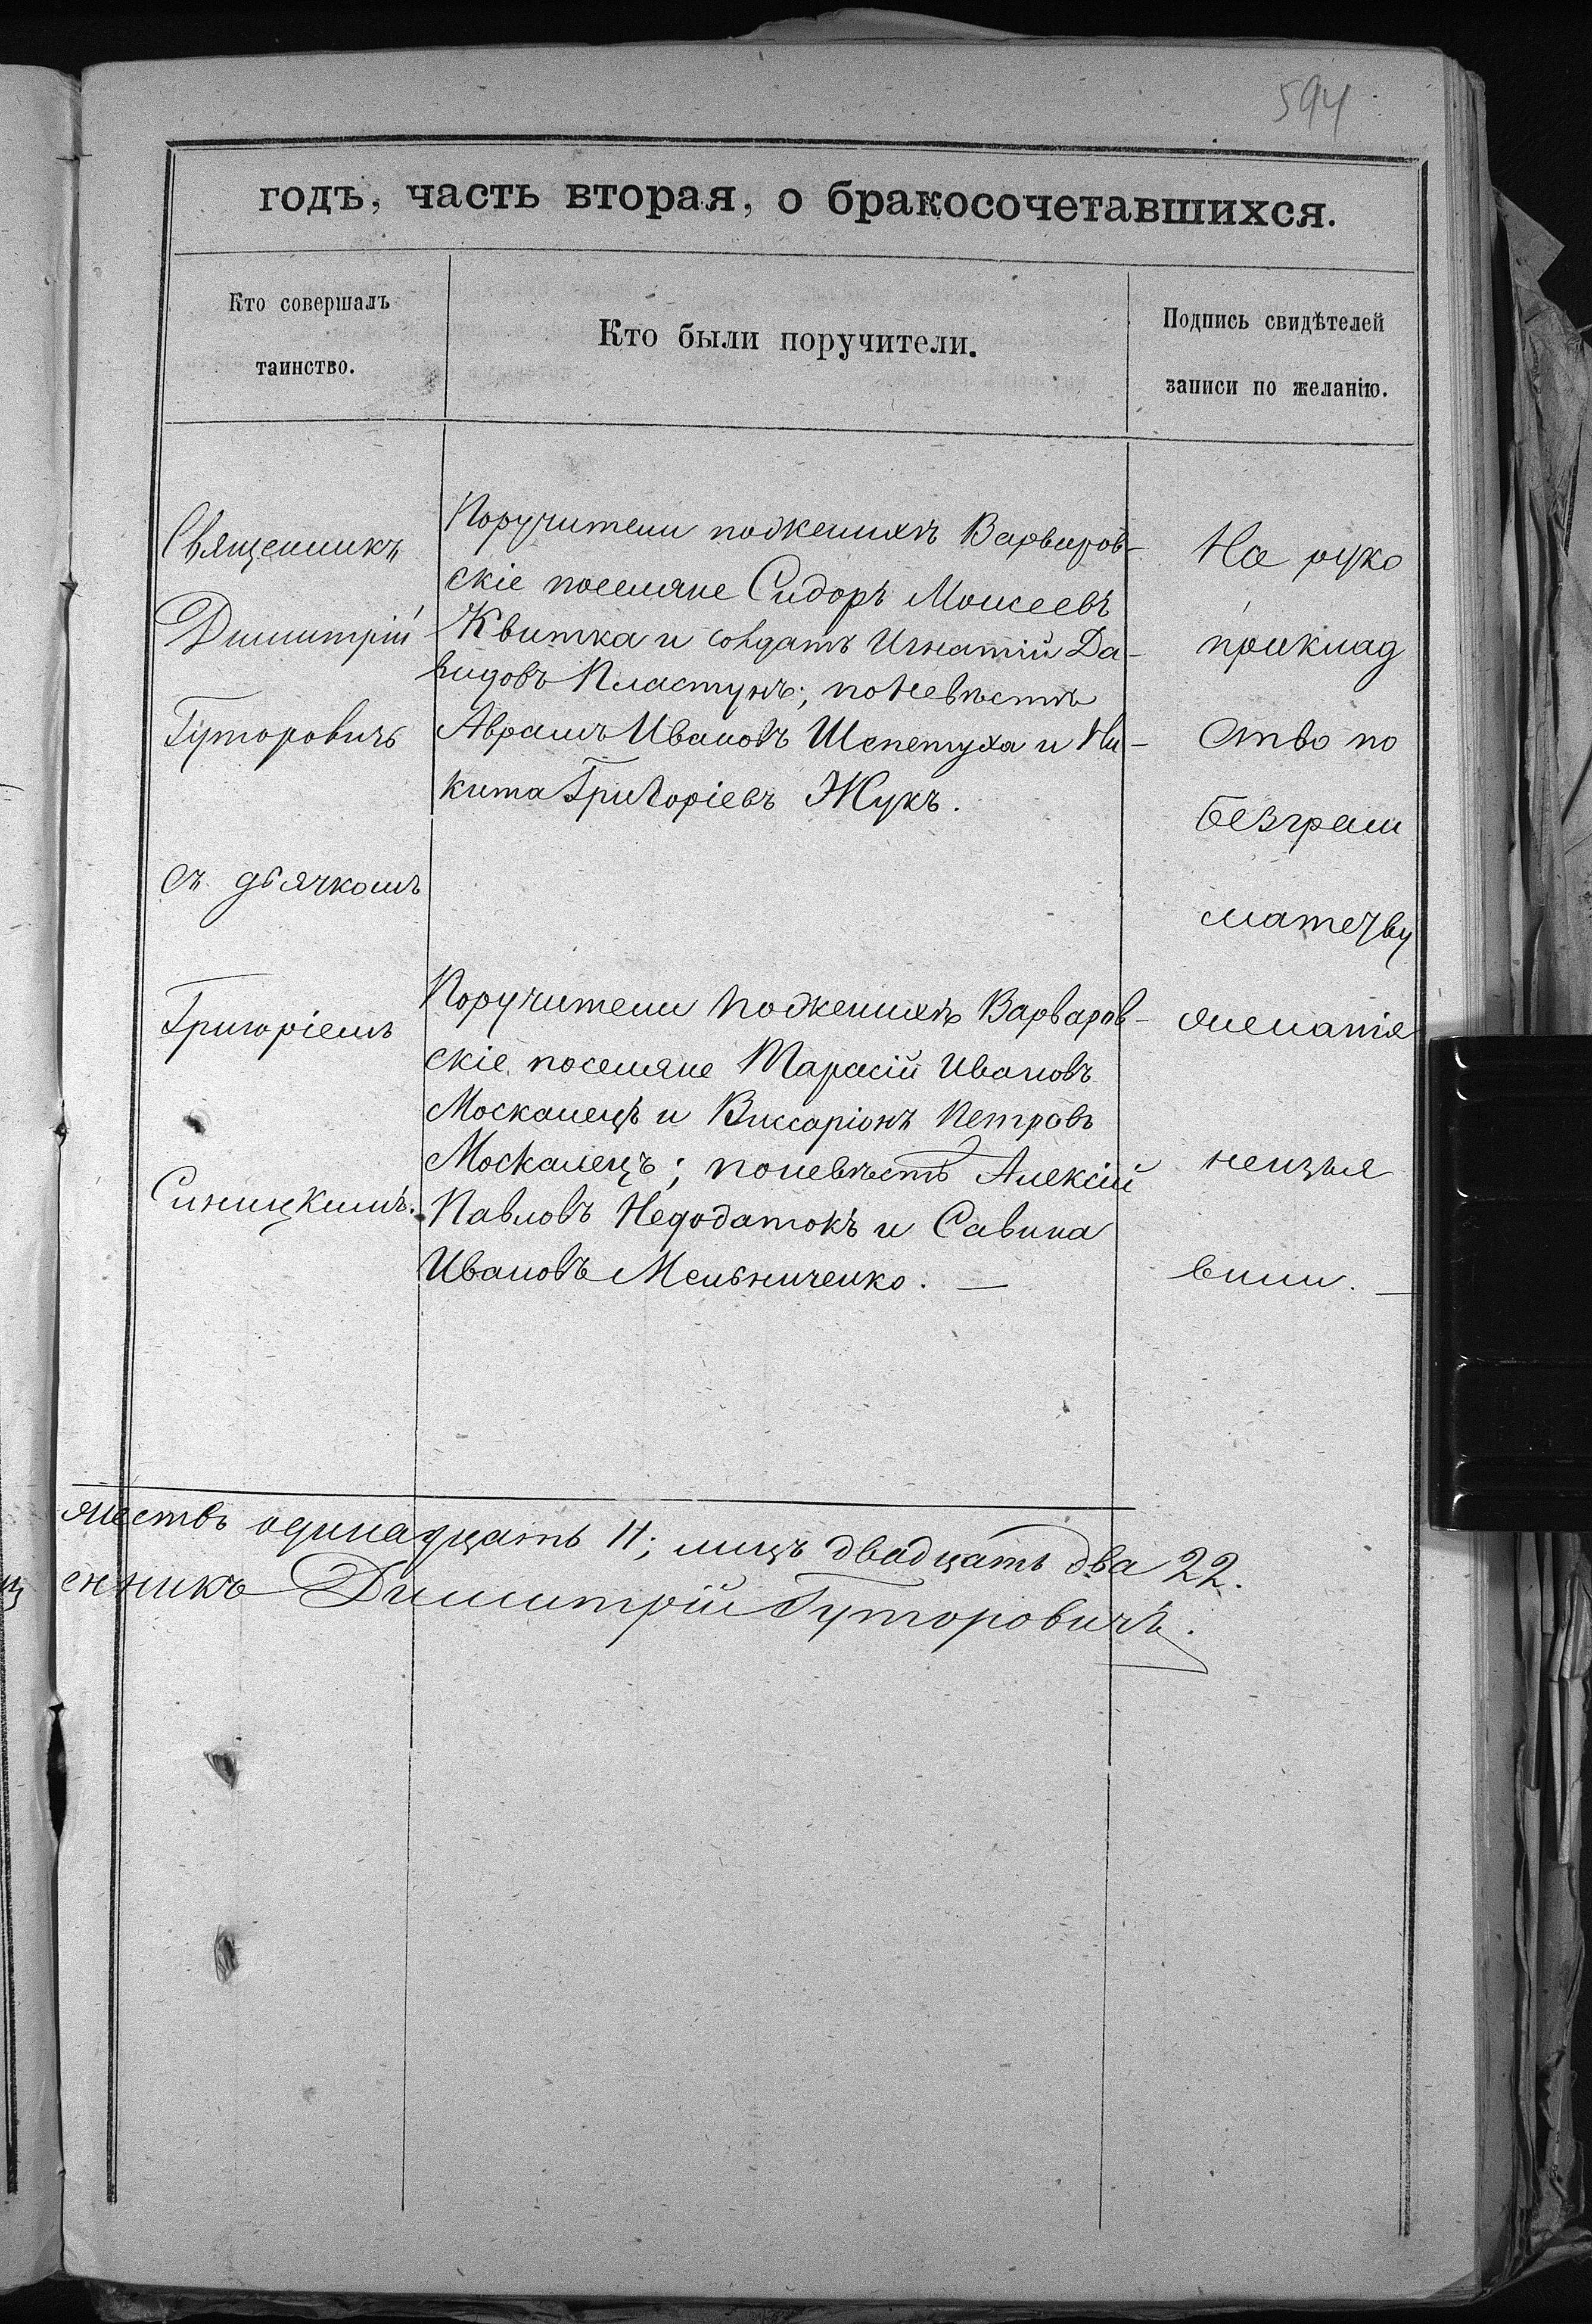 594
годъ, часть вторая, о бракосочетавшихся.
Кто совершалъ
таинство.
Кто были поручители.
Подпись свидѣтелей
записи по желанію.
Священникъ
Димитрій
Гуторовичъ
съ дьячкомъ
Григоріемъ
Синицкимъ.
Поручители по женихѣ Варваров-
скіе поселяне Сидоръ Моисеевъ
Квитка и солдатъ Игнатій Да-
видовъ Пластунъ; по невѣстѣ
Аврамъ Ивановъ Шепетуха и Ни-
кита Григоріевъ Жукъ.
Поручители по женихѣ Варваров-
скіе поселяне Тарасій Ивановъ
Москалецъ и Виссаріонъ Петровъ
Москалецъ; по невѣстѣ Алексій
Павловъ Недодатокъ и Савина
Ивановъ Мельниченко. —
На руко
приклад
ство по
безграм
мату
желанія
неизъя
вили. —
жествъ одинадцать 11; лицъ двадцать два 22.
енникъ Димитрій Гуторовичъ.